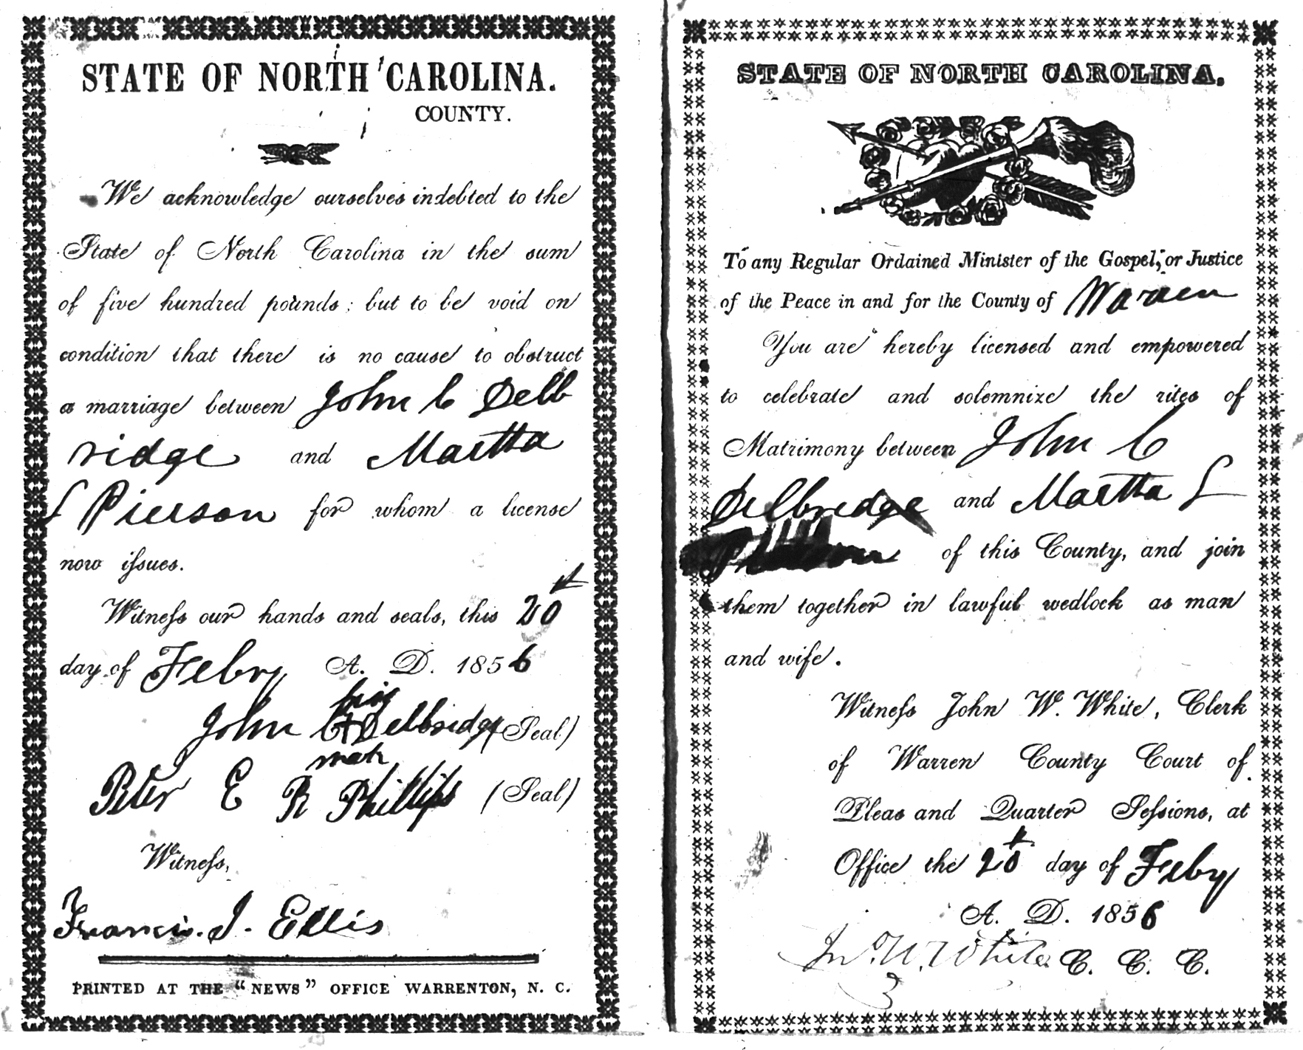 STATE OF NORTH CAROLINA.
COUNTY.
We acknowledge ourselves indebted to the
State of North Carolina in the sum
of five hundred pounds; but to be void on
condition that there is no cause to obstruct
a marriage between John C Delb
ridge and Martha
L Pierson for whom a license
now issues.
Witness our hands and seals, this 20t
day of Feby A. D. 1856
his
John C + Delbridge (Seal)
mark
Peter E R Phillips (Seal)
Witness,
Francis. J. Ellis
PRINTED AT THE "NEWS" OFFICE WARRENTON, N. C.
STATE OF NORTH CAROLINA.
To any Regular Ordained Minister of the Gospel, or Justice
of the Peace in and for the County of Warren
You are hereby licensed and empowered
to celebrate and solemnize the rites of
Matrimony between John C
Delbridge and Martha L
of this County, and join
them together in lawful wedlock as man
and wife.
Witness John W. White, Clerk
of Warren County Court of
Pleas and Quarter Sessions, at
Office the 20t day of Feby
A. D. 1856
Jn. W. White C. C. C.